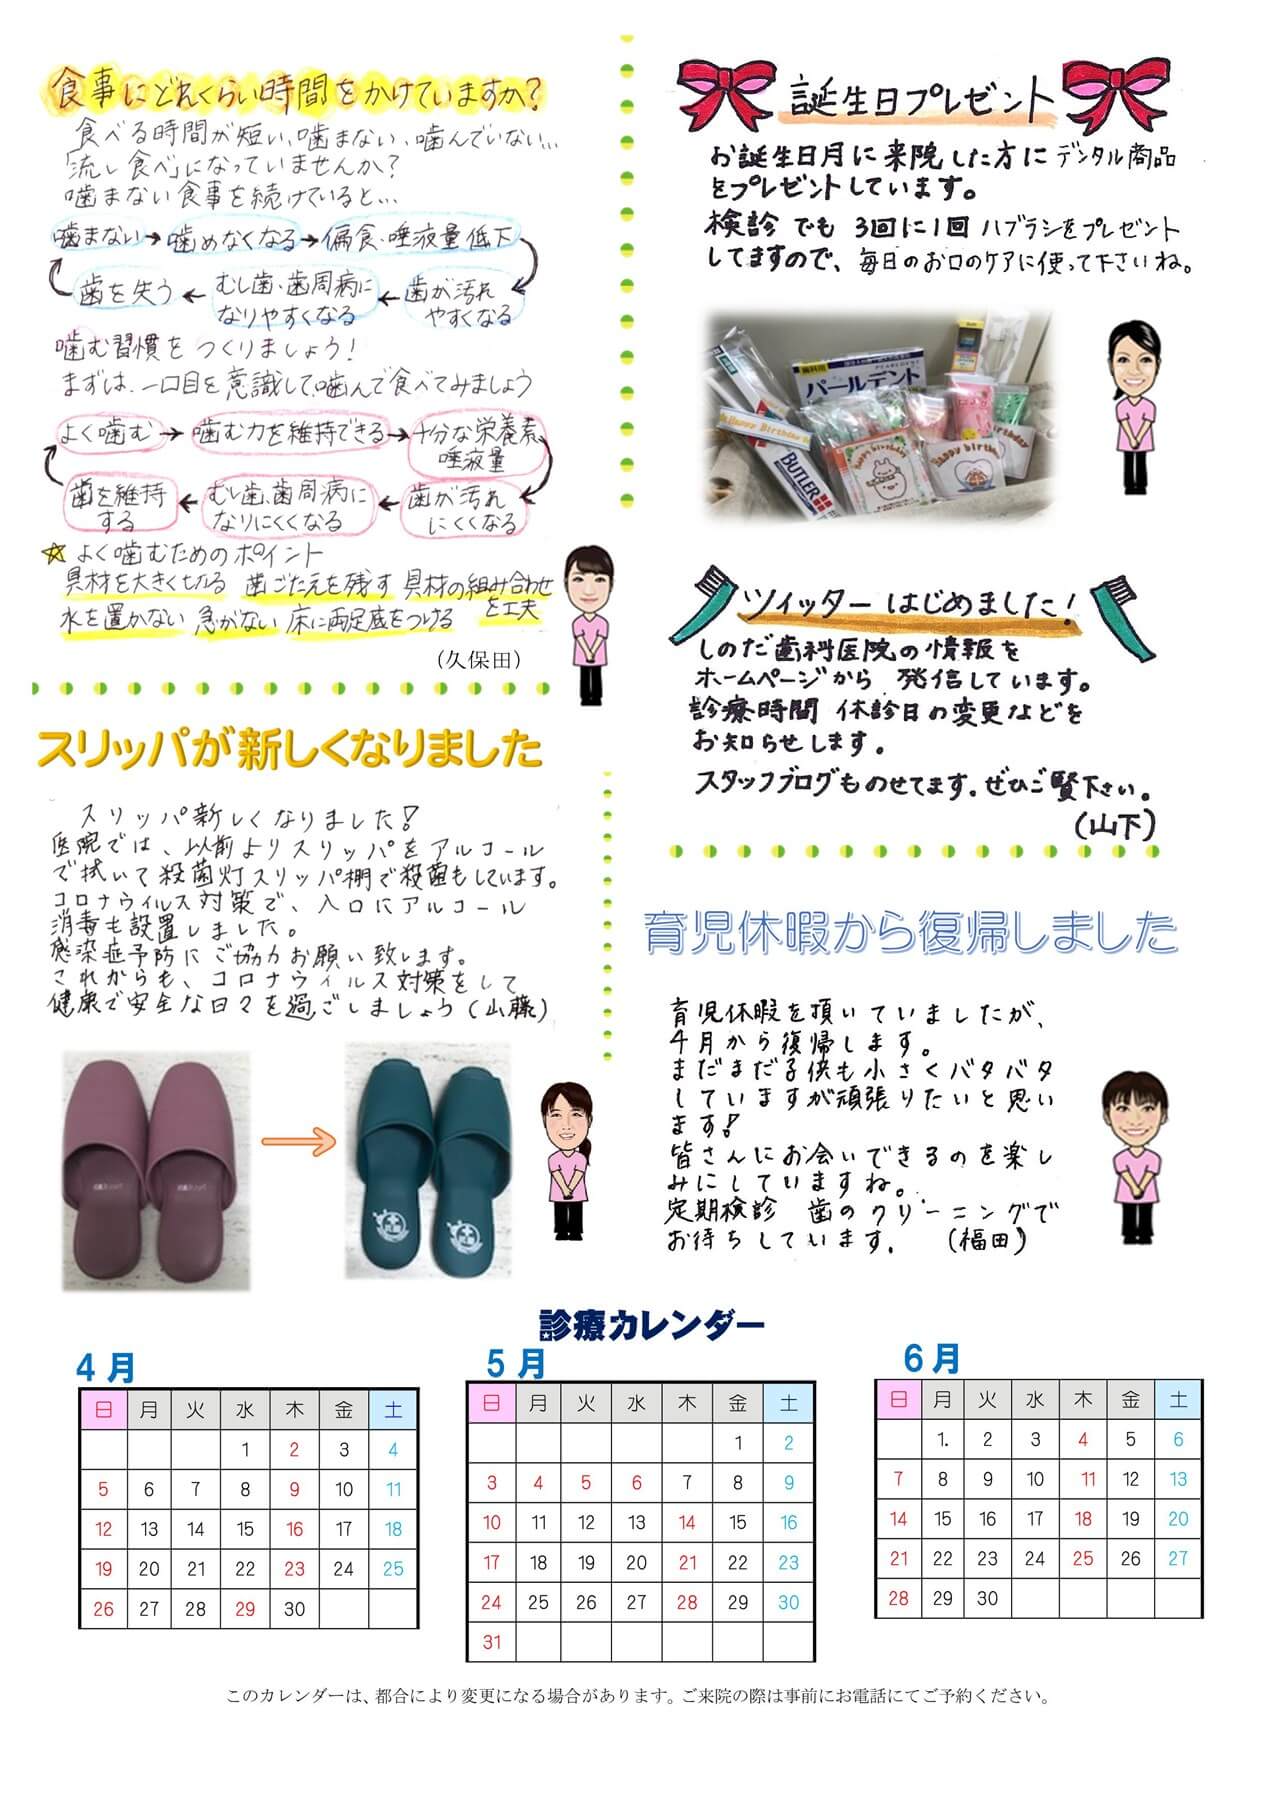 食事にどれくらい時間をかけていますか?
食べる時間が短い、噛まない、噛んでいない…
「流し食べ」になっていませんか?
噛まない食事を続けていると…
噛まない→噛めなくなる→偏食・唾液量低下
歯を失う←むし歯、歯周病に
なりやすくなる←歯が汚れ
やすくなる
噛む習慣をつくりましょう!
まずは、一口目を意識して噛んで食べてみましょう
よく噛む→噛む力を維持できる→十分な栄養素
唾液量
歯を維持
する←むし歯、歯周病に
なりにくくなる←歯が汚れ
にくくなる
☆よく噛むためのポイント
具材を大きく切る 歯ごたえを残す 具材の組み合わせ
を工夫
水を置かない 急がない 床に両足底をつける
(久保田)
スリッパが新しくなりました
スリッパ新しくなりました!
医院では、以前よりスリッパをアルコール
で拭いて殺菌灯スリッパ棚で殺菌もしています。
コロナウィルス対策で、入口にアルコール
消毒も設置しました。
感染症予防にご協力お願い致します。
これからも、コロナウィルス対策をして
健康で安全な日々を過ごしましょう(山藤)
誕生日プレゼント
お誕生日月に来院した方にデンタル商品
をプレゼントしています。
検診でも 3回に1回 ハブラシをプレゼント
してますので、毎日のお口のケアに使って下さいね。
歯科用
パールデント
Happy Birthday
BUTLER
Happy birthday
happy birthday
ツイッターはじめました!
しのだ歯科医院の情報を
ホームページから 発信しています。
診療時間 休診日の変更などを
お知らせします。
スタッフブログものせてます。ぜひご覧下さい。
(山下)
育児休暇から復帰しました
育児休暇を頂いていましたが、
4月から復帰します。
まだまだ子供も小さくバタバタ
していますが頑張りたいと思い
ます!
皆さんにお会いできるのを楽し
みにしていますね。
定期検診 歯のクリーニングで
お待ちしています。 (福田)
診療カレンダー
4月
日 月 火 水 木 金 土
1 2 3 4
5 6 7 8 9 10 11
12 13 14 15 16 17 18
19 20 21 22 23 24 25
26 27 28 29 30
5月
日 月 火 水 木 金 土
1 2
3 4 5 6 7 8 9
10 11 12 13 14 15 16
17 18 19 20 21 22 23
24 25 26 27 28 29 30
31
6月
日 月 火 水 木 金 土
1. 2 3 4 5 6
7 8 9 10 11 12 13
14 15 16 17 18 19 20
21 22 23 24 25 26 27
28 29 30
このカレンダーは、都合により変更になる場合があります。ご来院の際は事前にお電話にてご予約ください。